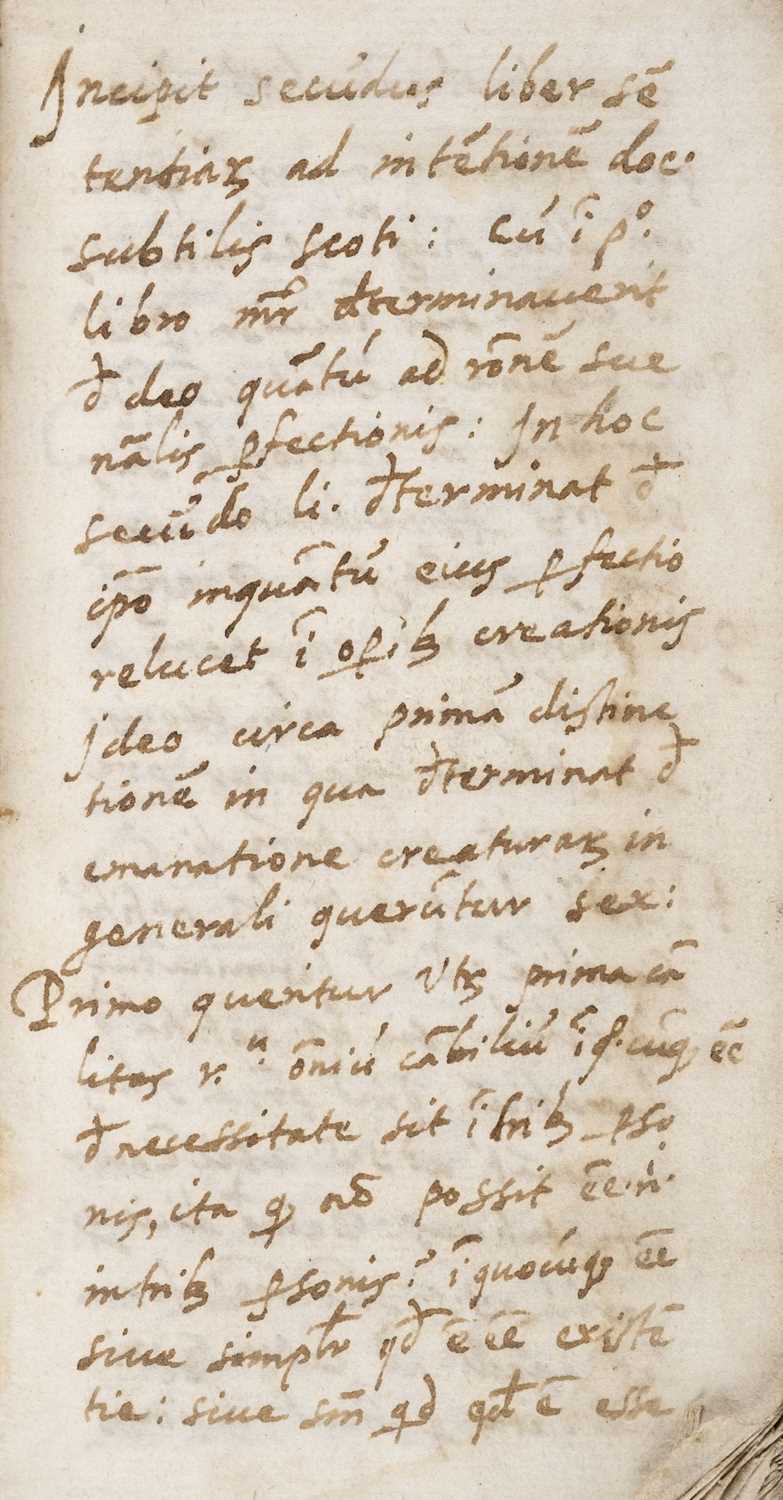 Incipit secūdus liber sē
tentiaꝝ ad intētionē doc.
subtilis scoti: Cū ī pº.
libro mr̄ đterminaverit
đ deo quātū ad rōnē sue
nālis ꝑfectionis: In hoc
secūdo li. đterminat đ
ip̄o inquātū eius ꝑfectio
relucet ī oꝑibꝫ creationis
Ideo circa primā distinc
tionē in qua đterminat đ
emanatione creaturaꝝ in
generali querūtur sex:
Primo queritur vtꝝ prima cā
litas r.u oīniū cābiliū ī q.cūqꝫ eē
đ necessitate sit ī tribꝫ ꝑso
nis, ita ꝙ nō possit eē .n.
in tribꝫ ꝑsonis? ī quocūqꝫ eē
sive simplr̄ qđ ē eē existē
tie: sive sm̄ quid qđ ē esse